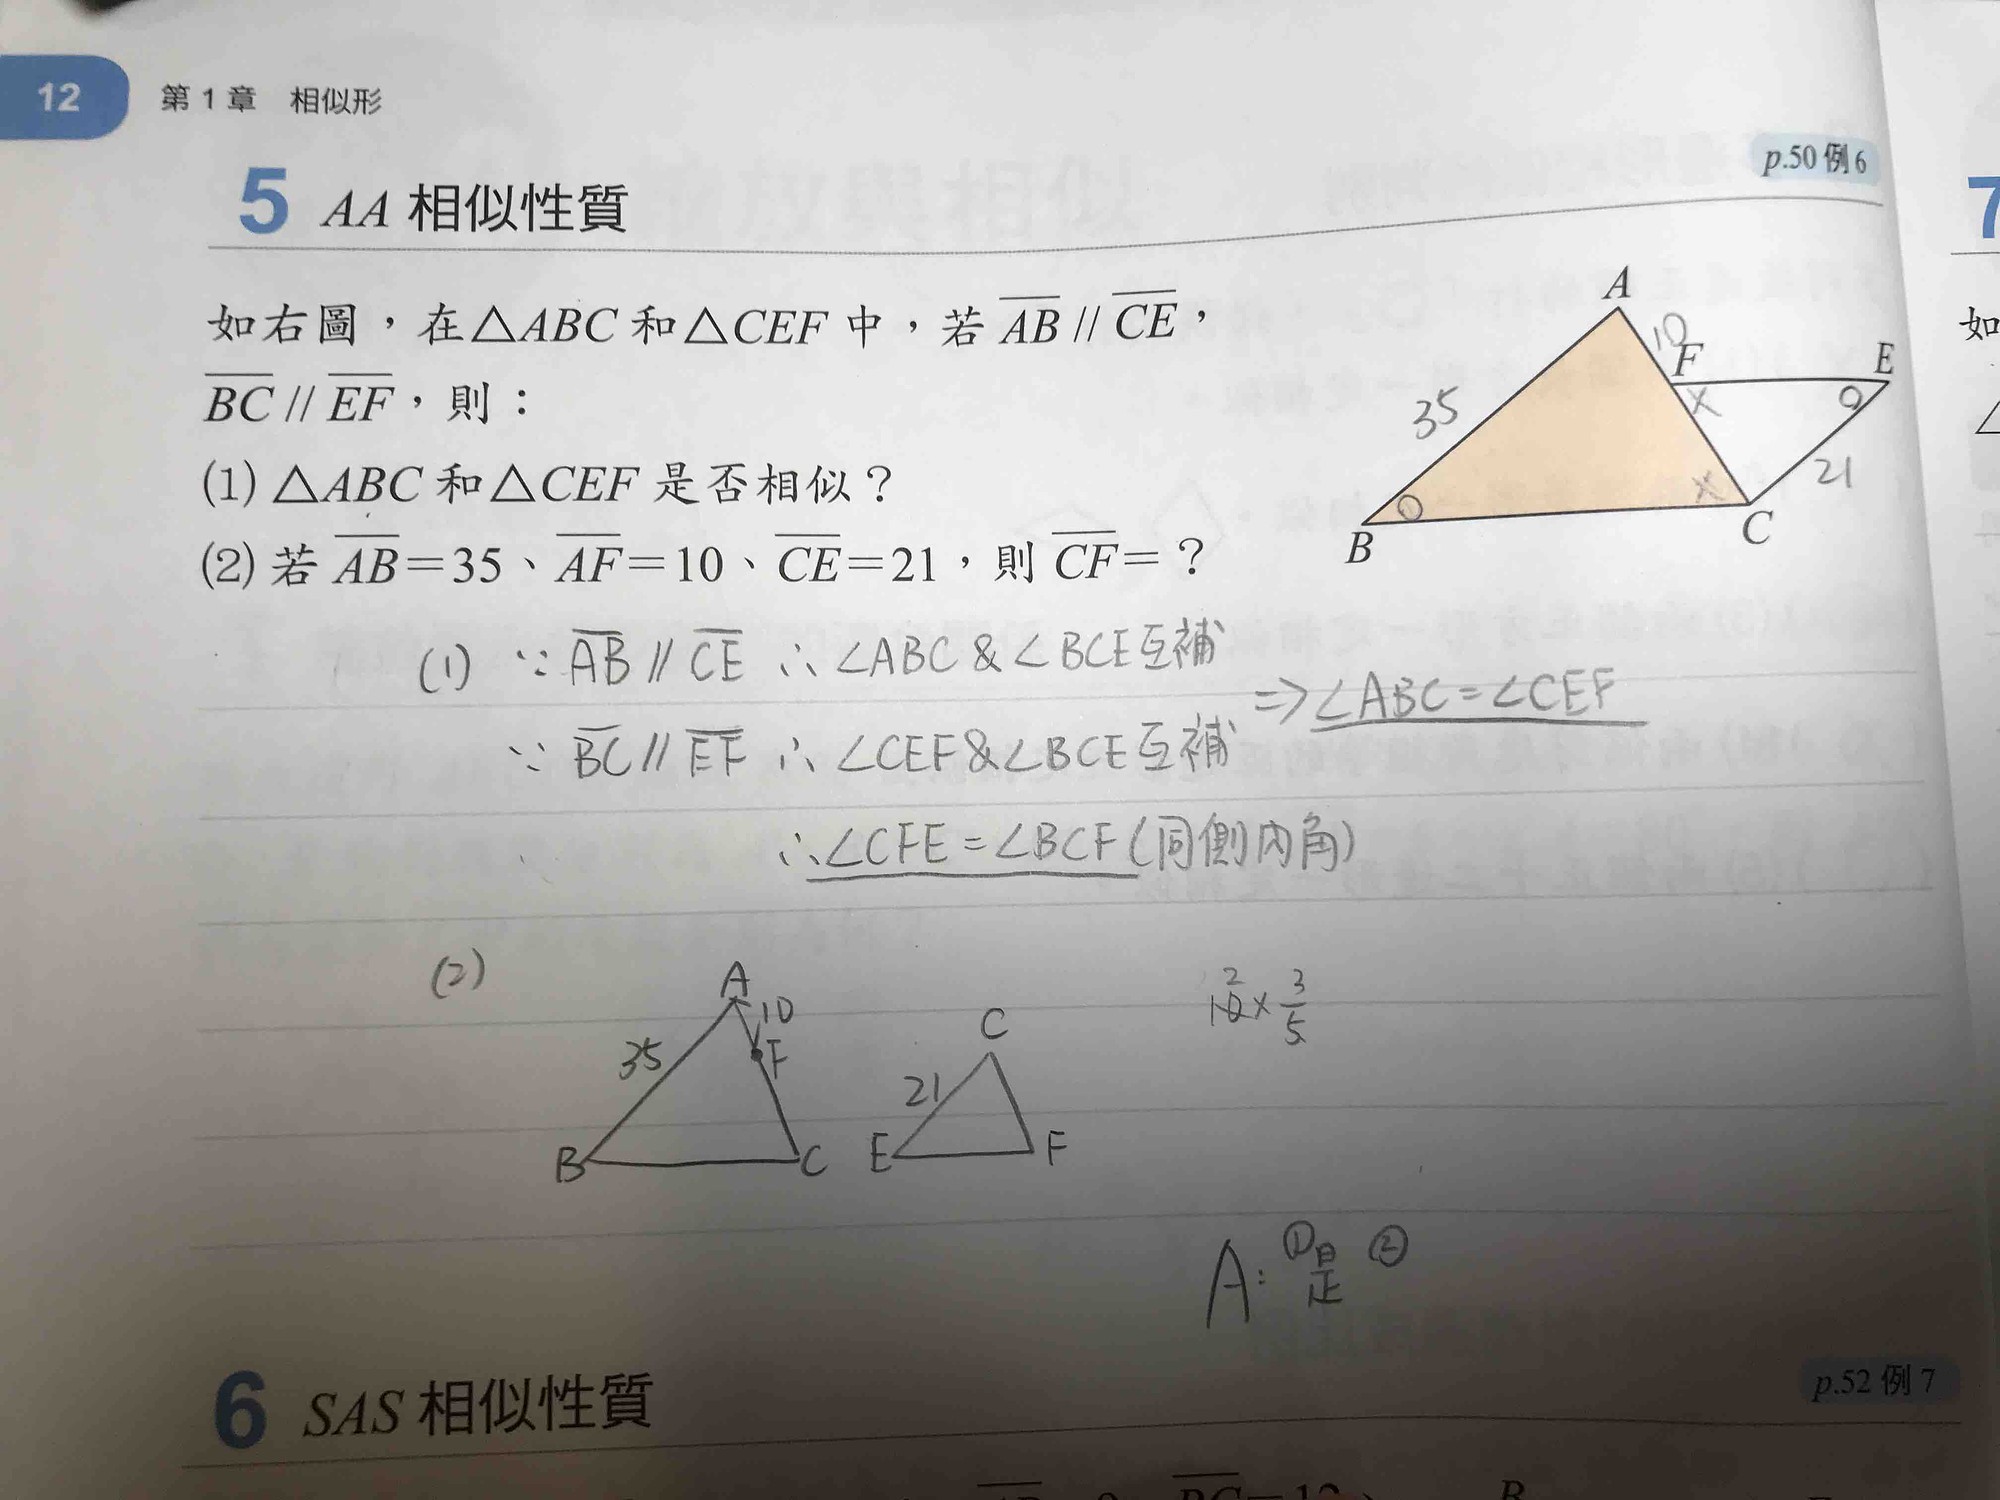 12 第1章 相似形
p.50 例6
5 AA 相似性質
如右圖，在△ABC 和△CEF 中，若 AB // CE，
BC // EF，則：
(1) △ABC 和△CEF 是否相似？
(2) 若 AB=35、AF=10、CE=21，則 CF=？
A
10
F
E
35
X
O
21
O
X
B
C
(1) ∵ AB // CE ∴ ∠ABC & ∠BCE互補
⇒ ∠ABC = ∠CEF
∵ BC // EF ∴ ∠CEF & ∠BCE互補
∴ ∠CFE = ∠BCF (同側內角)
(2)
A
10
35
F
B
C
C
21
E
F
2
10 × 3/5
A: ①是 ②
6 SAS 相似性質
p.52 例7
7
如
△